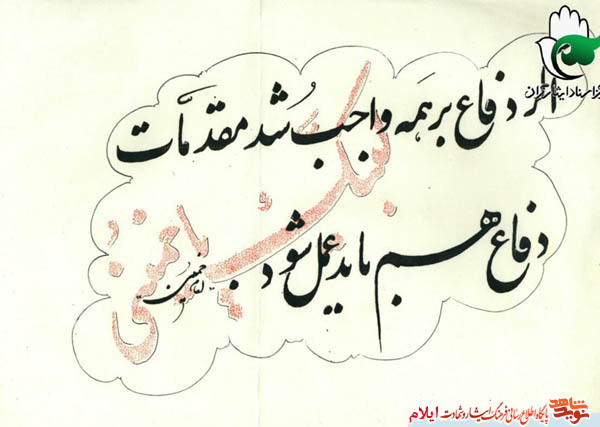 اگر دفاع بر همه واجب شد مقدمات
دفاع هم باید عمل شود
امام خمینی
لبیک
یا خمینی
اسناد ایثارگران
نوید شاهد
پایگاه اطلاع رسانی فرهنگ ایثار و شهادت ایلام